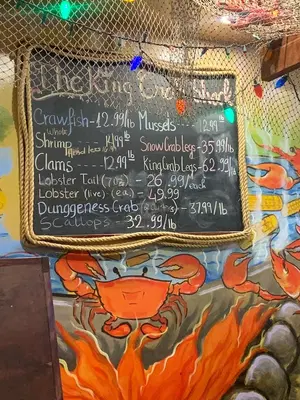 The King Crab Shack
Crawfish - 12.99/lb Mussels --- 12.99/lb
Shrimp (Whole)
Snow Crab Legs - 35.99/lb
Clams ---- 12.99/lb King Crab Legs - 62.99/lb
Lobster Tail (7oz) - 26.99/each
Lobster (live) (ea) - 49.99
Dunggeness Crab - 37.99/lb
Scallops - 32.99/lb